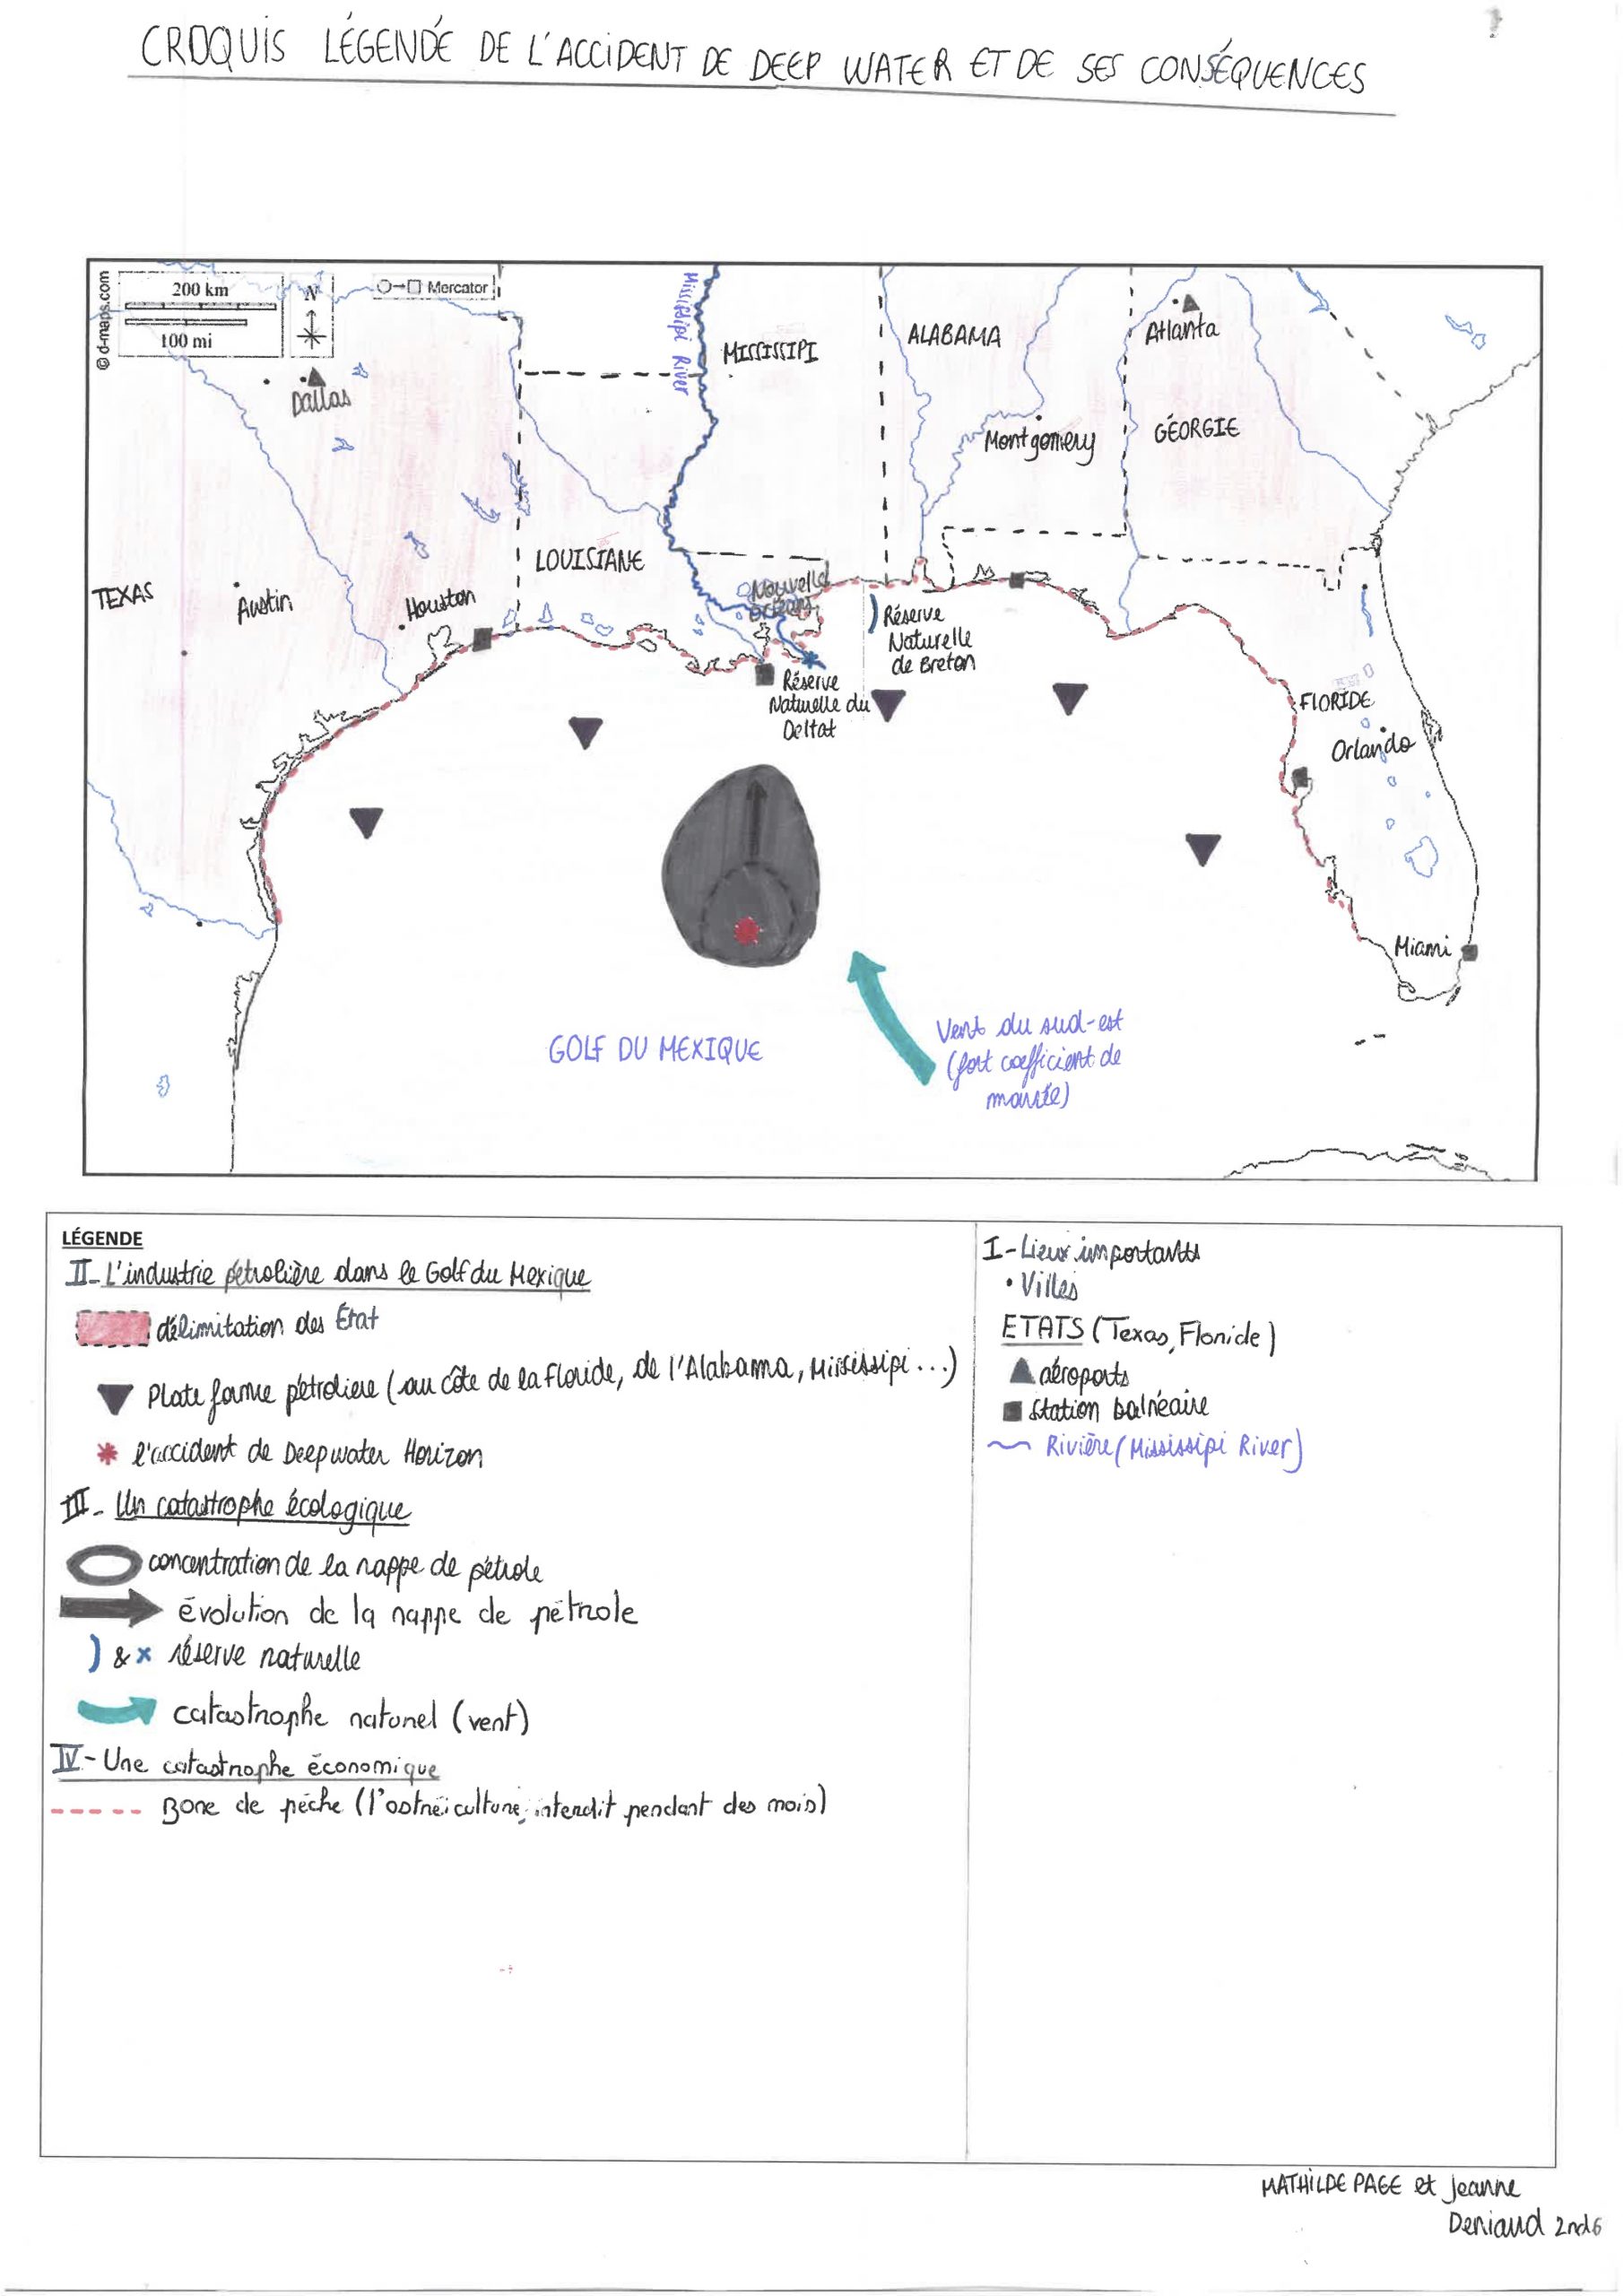 CROQUIS LÉGENDÉ DE L'ACCIDENT DE DEEP WATER ET DE SES CONSÉQUENCES
© d-maps.com
200 km
100 mi
N
Mercator
Missisipi River
MISSISSIPI
ALABAMA
Atlanta
Dallas
Montgomery
GÉORGIE
LOUISIANE
TEXAS
Austin
Houston
Nouvelle
Orléans
Réserve
Naturelle
de Breton
Réserve
Naturelle du
Deltat
FLORIDE
Orlando
Miami
GOLF DU MEXIQUE
Vent du sud-est
(fort coefficient de
marée)
LÉGENDE
II- L'industrie pétrolière dans le Golf du Mexique
délimitation des État
Plate forme pétroliere (au côte de la Floride, de l'Alabama, Mississipi...)
l'accident de Deepwater Horizon
III- Un catastrophe écologique
concentration de la nappe de pétrole
évolution de la nappe de pétrole
) & x réserve naturelle
catastrophe naturel (vent)
IV- Une catastrophe économique
Bone de pêche (l'ostréiculture, interdit pendant des mois)
I- Lieux importants
• Villes
ETATS (Texas, Floride)
aéroports
station balnéaire
Rivière (Mississipi River)
MATHILDE PAGE et Jeanne
Deniaud 2nd6